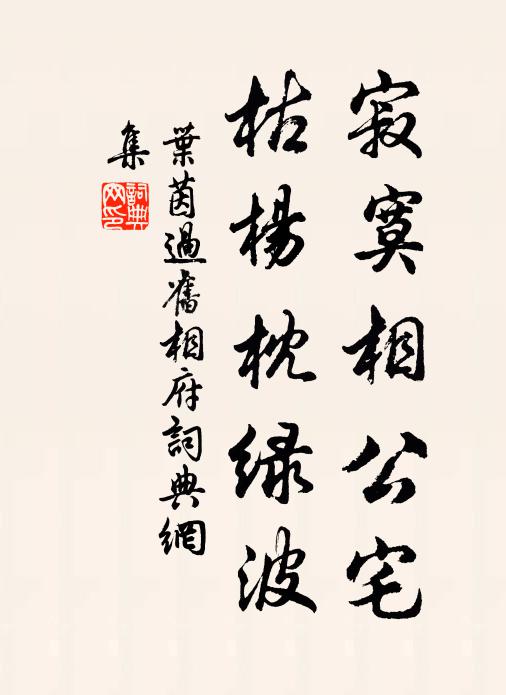 寂寞相公宅
枯楊枕绿波
葉茵過舊相府詞典網
集
詞典
网印